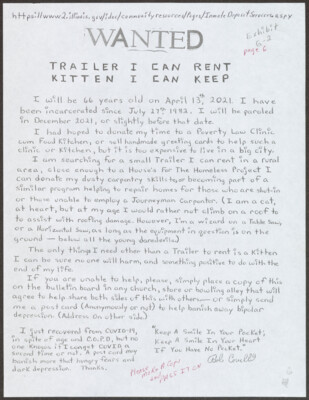 https://www2.illinois.gov/idoc/communityresources/Pages/InmateDepositServices.aspx
Exhibit
G-2
page 6
WANTED
TRAILER I CAN RENT
KITTEN I CAN KEEP
I will be 66 years old on April 13th 2021. I have
been incarcerated since July 27th 1982. I will be paroled
in December 2021, or slightly before that date.
I had hoped to donate my time to a Poverty Law Clinic
Food Kitchen, or sell handmade greeting cards to help such a
clinic or Kitchen, but it is too expensive to live in a big city.
I am searching for a small Trailer I can rent in a rural
area, close enough to a House's For The Homeless Project I
can donate my dusty carpentry skills too becoming part of a
similar program helping to repair homes for those who are shut-in
or those unable to employ a Journeyman Carpenter. (I am a cat,
at heart, but at my age I would rather not climb on a roof to
to assist with roofing damage. However, I'm a wizard on a Table Saw,
or a Horizontal Saw, as long as the equipment in question is on the
ground — below all the young daredevils)
The only thing I need other than a Trailer to rent is a Kitten
I can be sure no one will harm, and something positive to do with the
end of my life.
If you are unable to help, please, simply place a copy of this
on the bulletin board in any church, store or bowling alley that will
agree to help share both sides of this with others — or simply send
me a post card (Anonymously or not) to help banish away bipolar
depression. (Address On other side)
I just recovered from COVID-19,
in spite of age and C.O.P.D., but no
one Knows if I can get COVID, a
second time or not. A post card may
banish more than hungry fears and
dark depression. Thanks.
"Keep A Smile In Your Pocket,
Keep A Smile In Your Heart
If You Have No Pocket."
Please
Make A Copy
POST IT OK